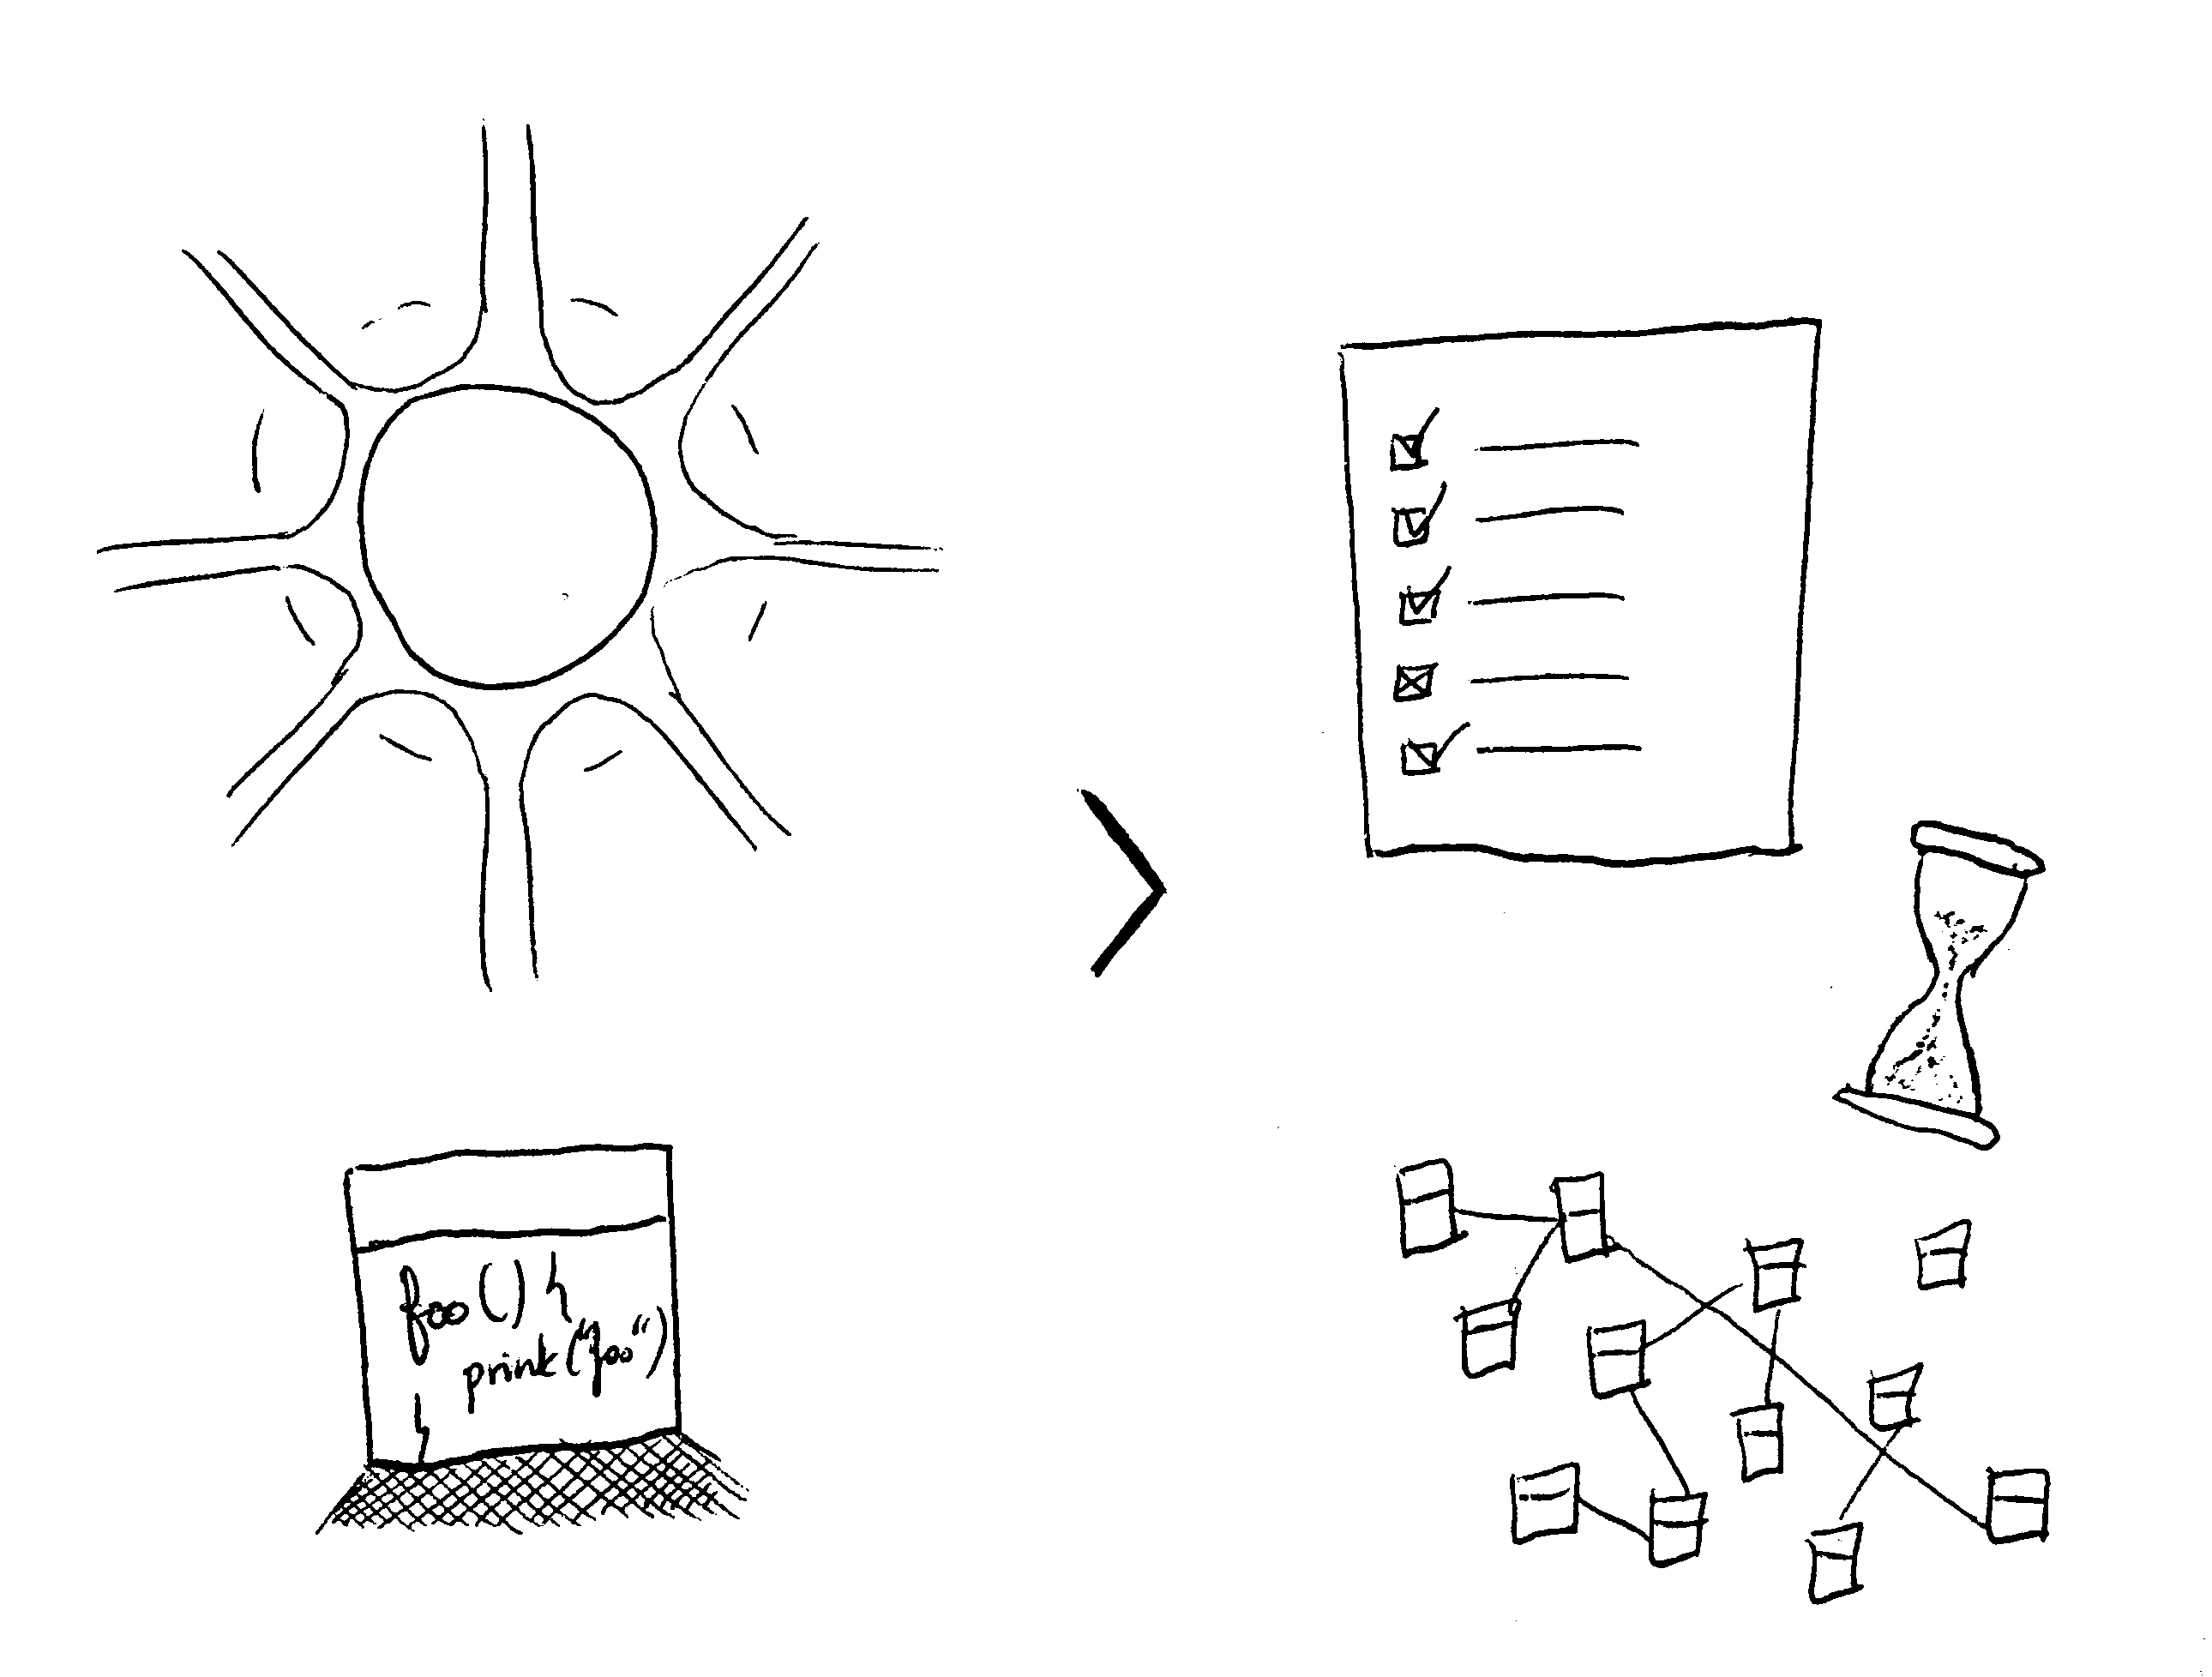 foo() {
print("foo")
}